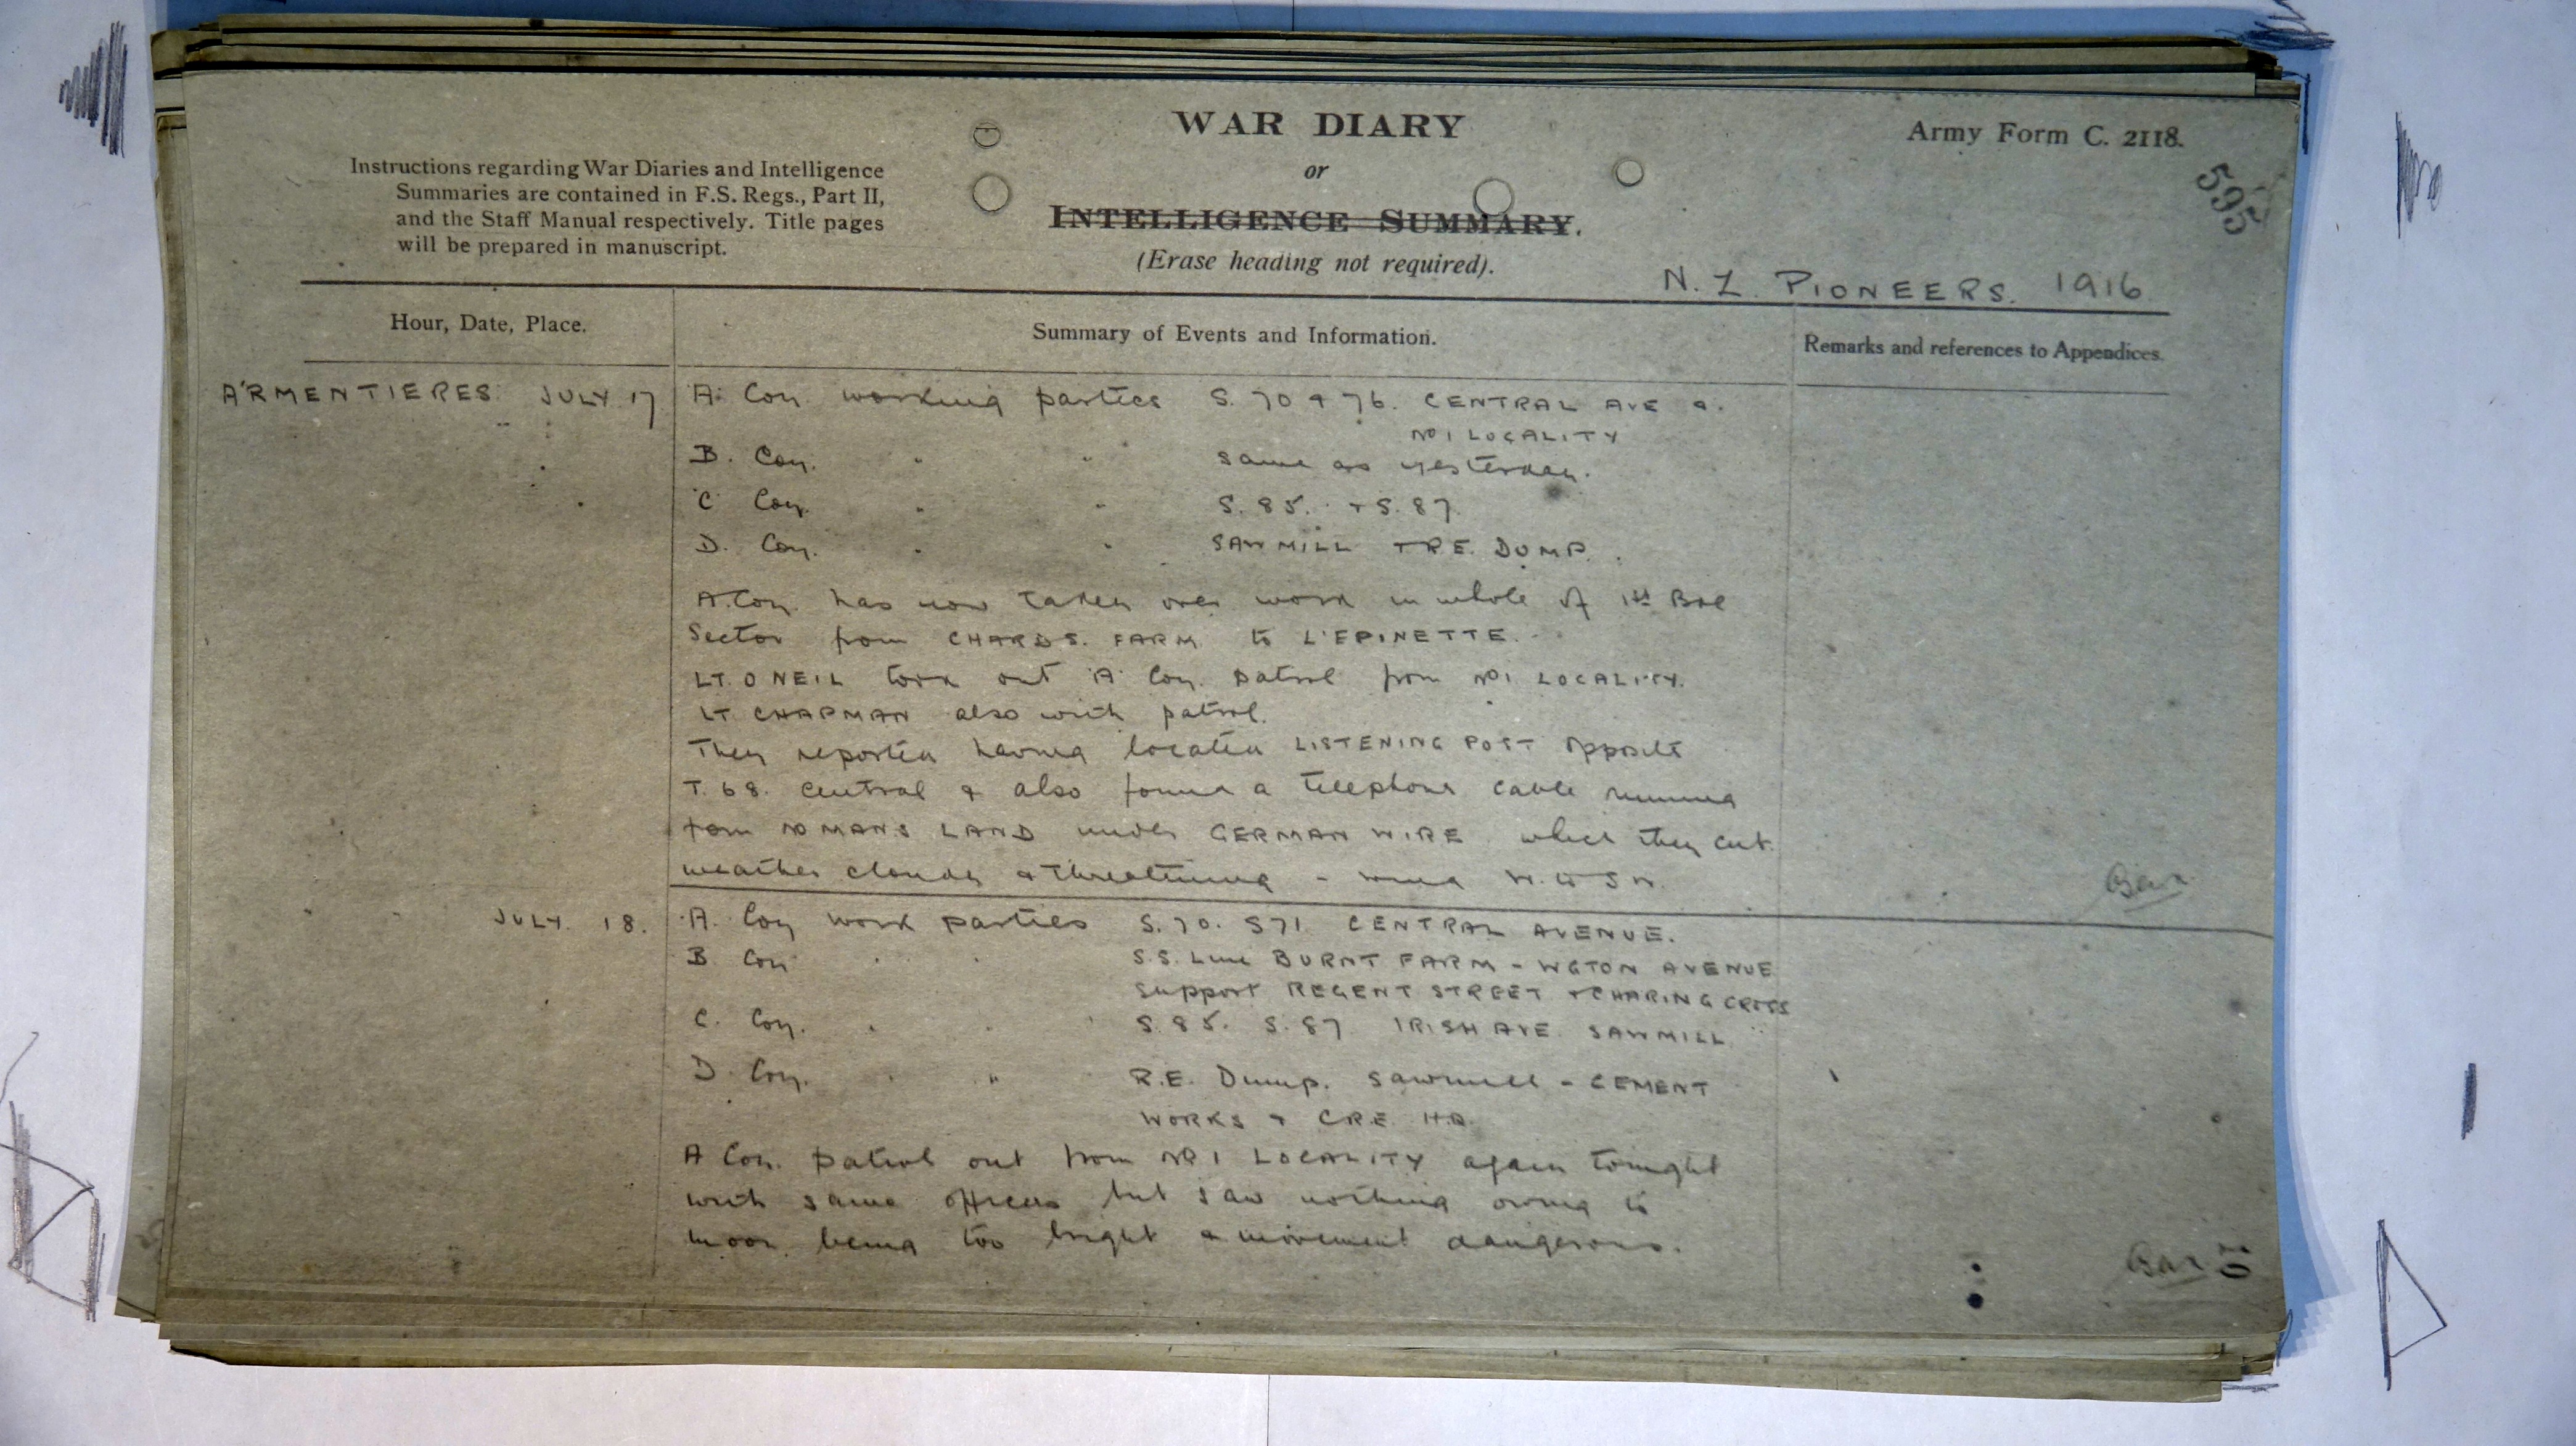 WAR DIARY
or
INTELLIGENCE SUMMARY.
(Erase heading not required).
Army Form C. 2118.
595
Instructions regarding War Diaries and Intelligence
Summaries are contained in F.S. Regs., Part II,
and the Staff Manual respectively. Title pages
will be prepared in manuscript.
N. Z. PIONEERS. 1916
Hour, Date, Place.
Summary of Events and Information.
Remarks and references to Appendices.
ARMENTIERES. JULY. 17
A. Coy. working parties S. 70 & 76. CENTRAL AVE &.
No 1 LOCALITY
B. Coy. " " same as yesterday.
C Coy. " " S. 85. + S. 87.
D. Coy. " " SAWMILL + R.E. DUMP.
A. Coy. has now taken over work in whole of 1st Bde
Sector from CHARDS. FARM. to L'EPINETTE.
LT. O NEIL took out A Coy. patrol from No 1 LOCALITY.
LT CHAPMAN also with patrol.
They reported having located LISTENING POST opposite
T. 68. Central & also found a telephone cable running
from NO MANS LAND under GERMAN WIRE which they cut.
weather cloudy & threatening - wind W. to S W.
" " JULY. 18.
A. Coy work parties S. 70. S71. CENTRAL AVENUE.
B Coy " " S.S. Line BURNT FARM - WGTON AVENUE
Support REGENT STREET + CHARING CROSS
C. Coy. " " S. 85. S. 87 IRISH AVE. SAWMILL
D. Coy. " " R.E. Dump. Sawmill - CEMENT
WORKS & CRE H.Q.
A Coy. patrol out from No 1 LOCALITY again tonight
with same officers but saw nothing owing to
moon being too bright & movement dangerous.